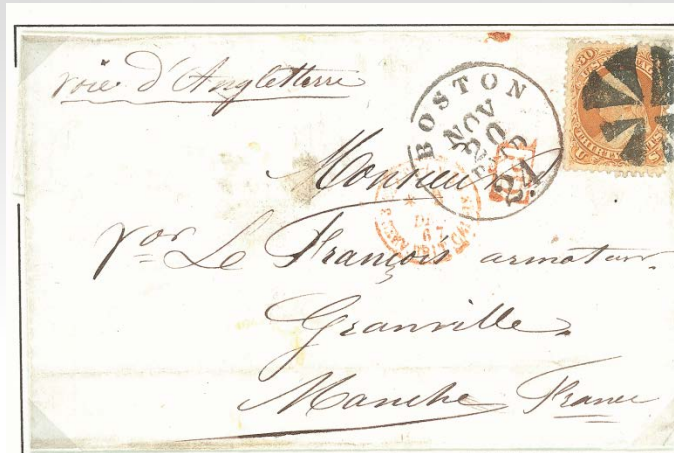 voie d'Angleterre
BOSTON
NOV
20
PAID
24
PD
Monsieur
Vor Le François armateur
Granville
Manche France